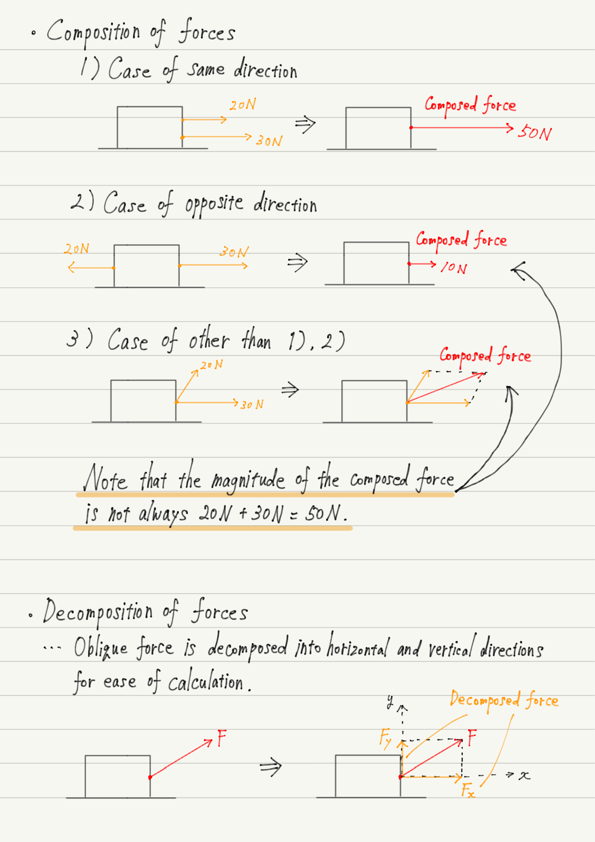 · Composition of forces
1) Case of same direction
20N
30N
⇒
Composed force
50N
2) Case of opposite direction
20N
30N
⇒
Composed force
10N
3) Case of other than 1), 2)
20N
30N
⇒
Composed force
Note that the magnitude of the composed force
is not always 20N + 30N = 50N.
· Decomposition of forces
... Oblique force is decomposed into horizontal and vertical directions
for ease of calculation.
F
⇒
y
Decomposed force
Fy
F
x
Fx